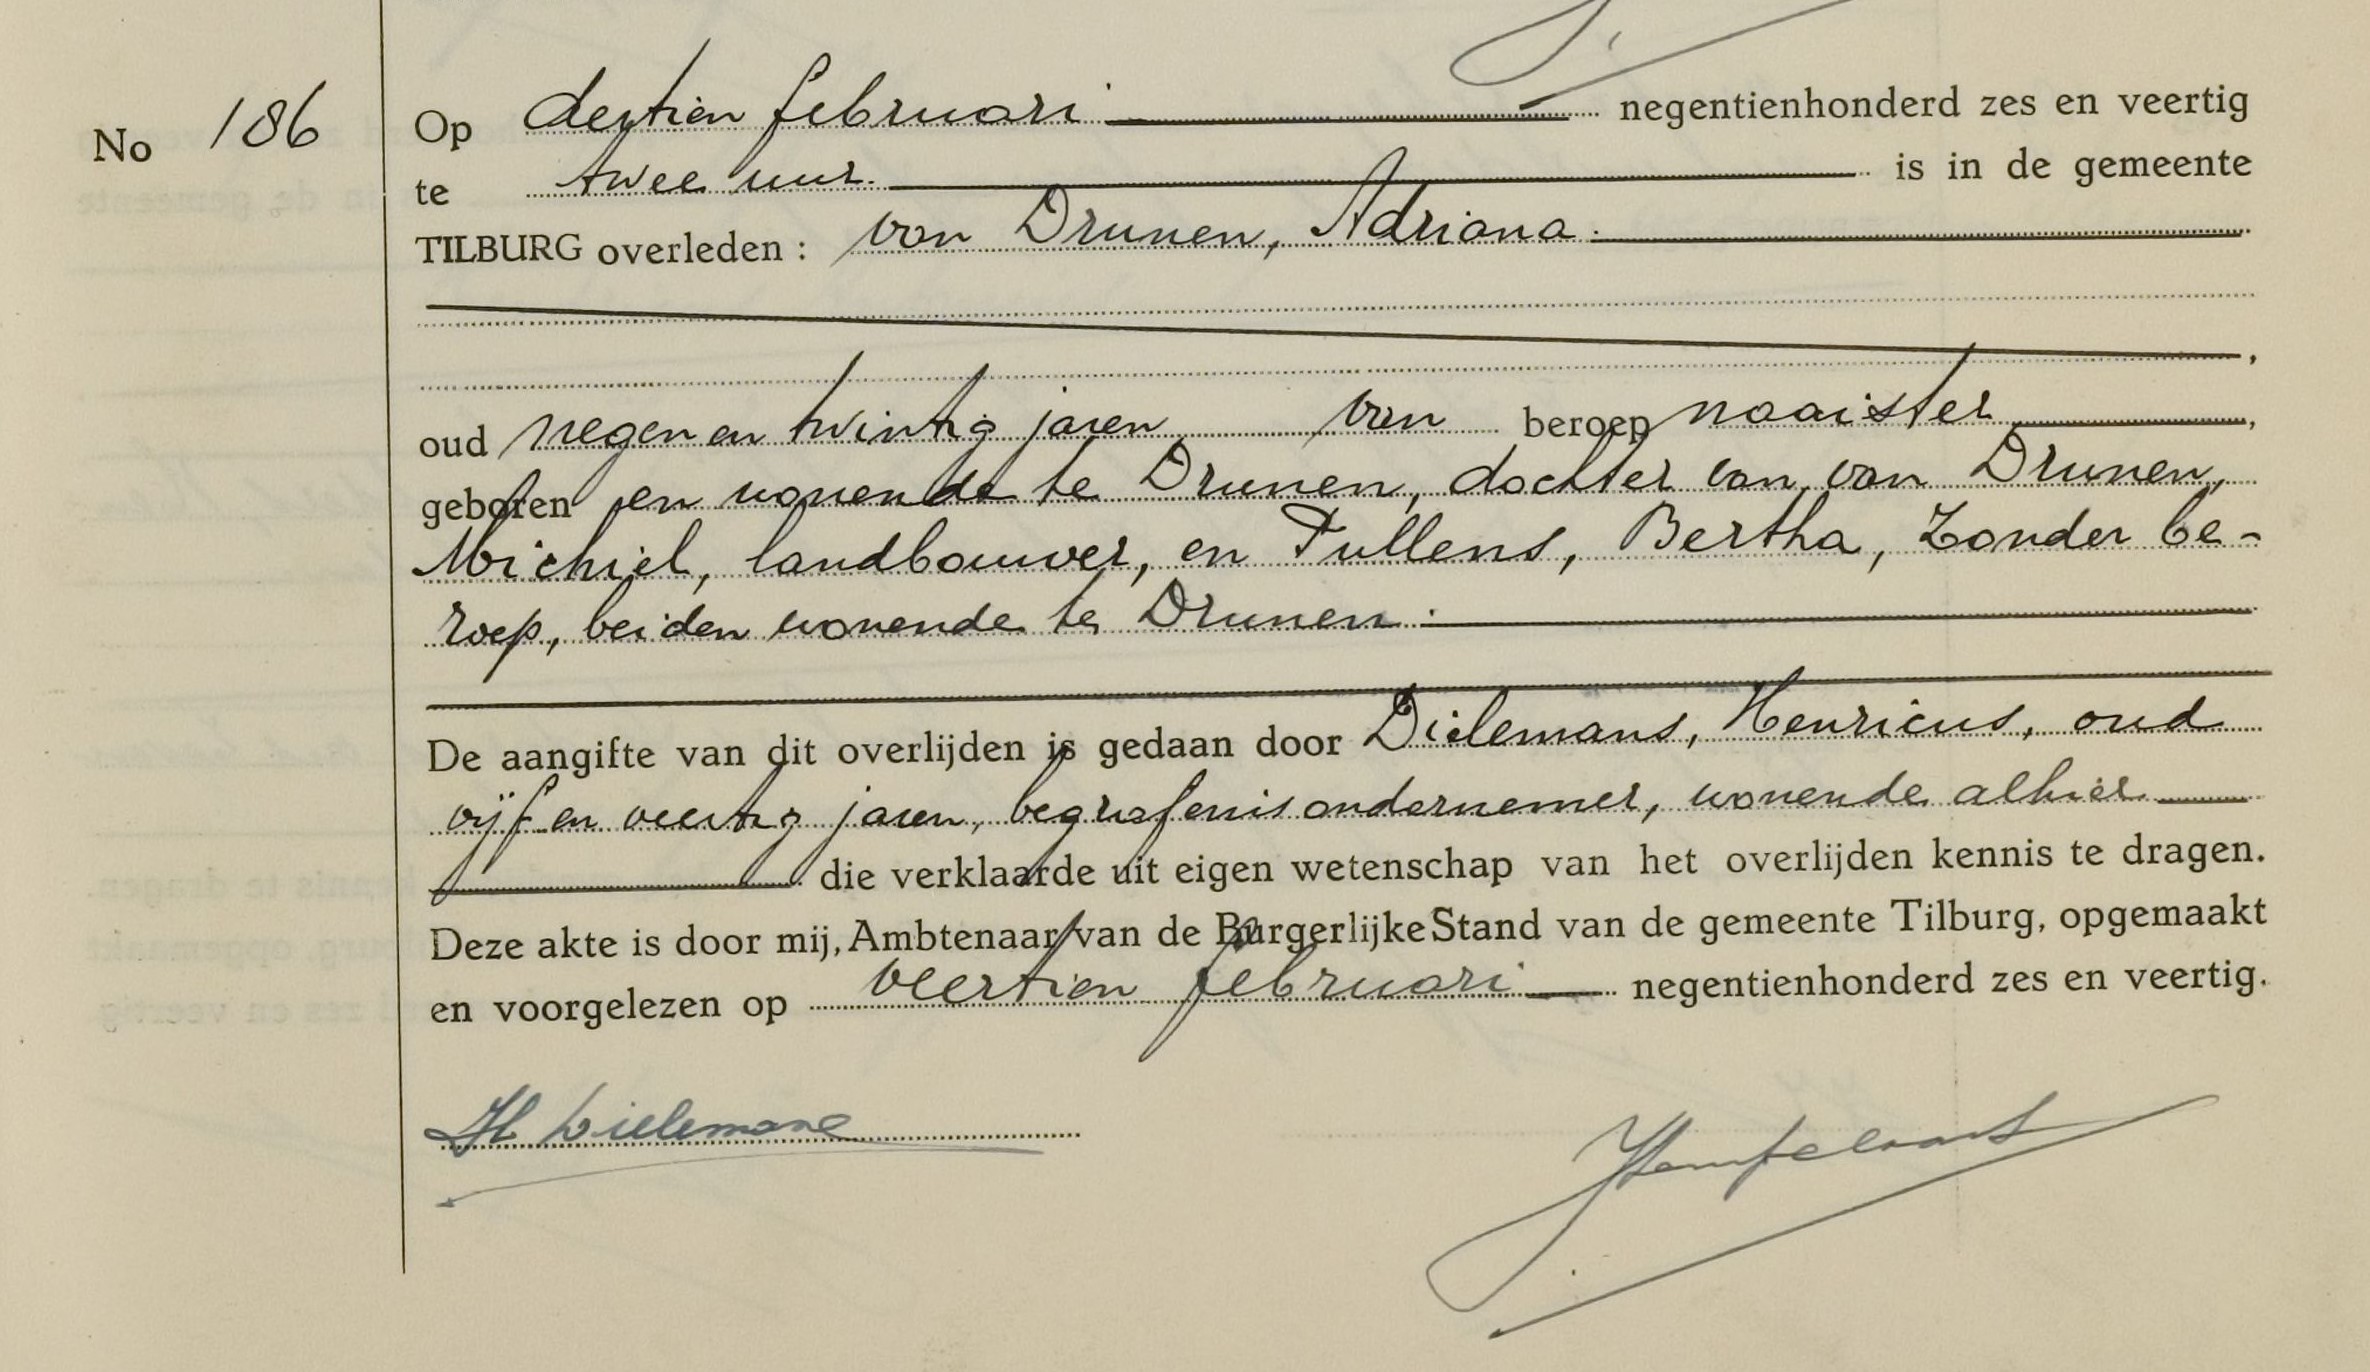 No 186
Op dertien februari negentienhonderd zes en veertig
te twee uur. is in de gemeente
TILBURG overleden : van Drunen, Adriana.
,
oud negen en twintig jaren, van beroep naaister,
geboren en wonende te Drunen, dochter van van Drunen,
Michiel, landbouwer, en Tullens, Bertha, zonder be-
roep, beiden wonende te Drunen.
De aangifte van dit overlijden is gedaan door Dielemans, Henricus, oud
vijf en veertig jaren, begrafenisondernemer, wonende alhier
die verklaarde uit eigen wetenschap van het overlijden kennis te dragen.
Deze akte is door mij, Ambtenaar van de Burgerlijke Stand van de gemeente Tilburg, opgemaakt
en voorgelezen op veertien februari negentienhonderd zes en veertig.
H Dielemans